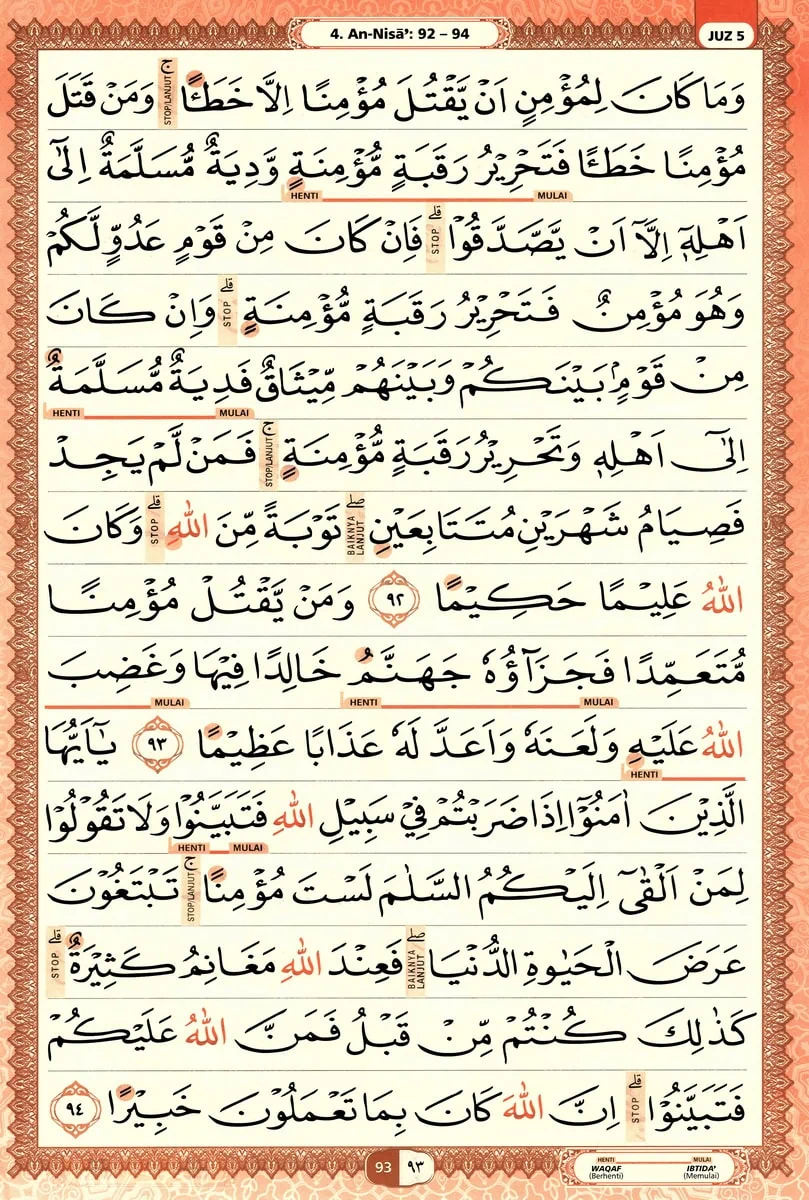 4. An-Nisā': 92 – 94
JUZ 5
وَمَا كَانَ لِمُؤْمِنٍ اَنْ يَّقْتُلَ مُؤْمِنًا اِلَّا خَطَـًٔا ۚ وَمَنْ قَتَلَ
STOP/LANJUT
مُؤْمِنًا خَطَـًٔا فَتَحْرِيْرُ رَقَبَةٍ مُّؤْمِنَةٍ وَّدِيَةٌ مُّسَلَّمَةٌ اِلٰٓى
MULAI HENTI
اَهْلِهٖٓ اِلَّآ اَنْ يَّصَّدَّقُوْا ۗ فَاِنْ كَانَ مِنْ قَوْمٍ عَدُوٍّ لَّكُمْ
STOP
وَهُوَ مُؤْمِنٌ فَتَحْرِيْرُ رَقَبَةٍ مُّؤْمِنَةٍ ۗ وَاِنْ كَانَ
STOP
مِنْ قَوْمٍۢ بَيْنَكُمْ وَبَيْنَهُمْ مِّيْثَاقٌ فَدِيَةٌ مُّسَلَّمَةٌ
MULAI HENTI
اِلٰٓى اَهْلِهٖ وَتَحْرِيْرُ رَقَبَةٍ مُّؤْمِنَةٍ ۚ فَمَنْ لَّمْ يَجِدْ
STOP/LANJUT
فَصِيَامُ شَهْرَيْنِ مُتَتَابِعَيْنِ ۖ تَوْبَةً مِّنَ اللّٰهِ ۗ وَكَانَ
BAIKNYA LANJUT STOP
اللّٰهُ عَلِيْمًا حَكِيْمًا ٩٢ وَمَنْ يَّقْتُلْ مُؤْمِنًا
مُّتَعَمِّدًا فَجَزَاۤؤُهٗ جَهَنَّمُ خَالِدًا فِيْهَا وَغَضِبَ
MULAI HENTI MULAI
اللّٰهُ عَلَيْهِ وَلَعَنَهٗ وَاَعَدَّ لَهٗ عَذَابًا عَظِيْمًا ٩٣ يٰٓاَيُّهَا
HENTI
الَّذِيْنَ اٰمَنُوْٓا اِذَا ضَرَبْتُمْ فِيْ سَبِيْلِ اللّٰهِ فَتَبَيَّنُوْا وَلَا تَقُوْلُوْا
MULAI HENTI
لِمَنْ اَلْقٰىٓ اِلَيْكُمُ السَّلٰمَ لَسْتَ مُؤْمِنًا ۚ تَبْتَغُوْنَ
STOP/LANJUT
عَرَضَ الْحَيٰوةِ الدُّنْيَا ۖ فَعِنْدَ اللّٰهِ مَغَانِمُ كَثِيْرَةٌ ۗ
BAIKNYA LANJUT STOP
كَذٰلِكَ كُنْتُمْ مِّنْ قَبْلُ فَمَنَّ اللّٰهُ عَلَيْكُمْ
فَتَبَيَّنُوْا ۗ اِنَّ اللّٰهَ كَانَ بِمَا تَعْمَلُوْنَ خَبِيْرًا ٩٤
STOP
93 ٩٣
HENTI MULAI
WAQAF IBTIDA'
(Berhenti) (Memulai)